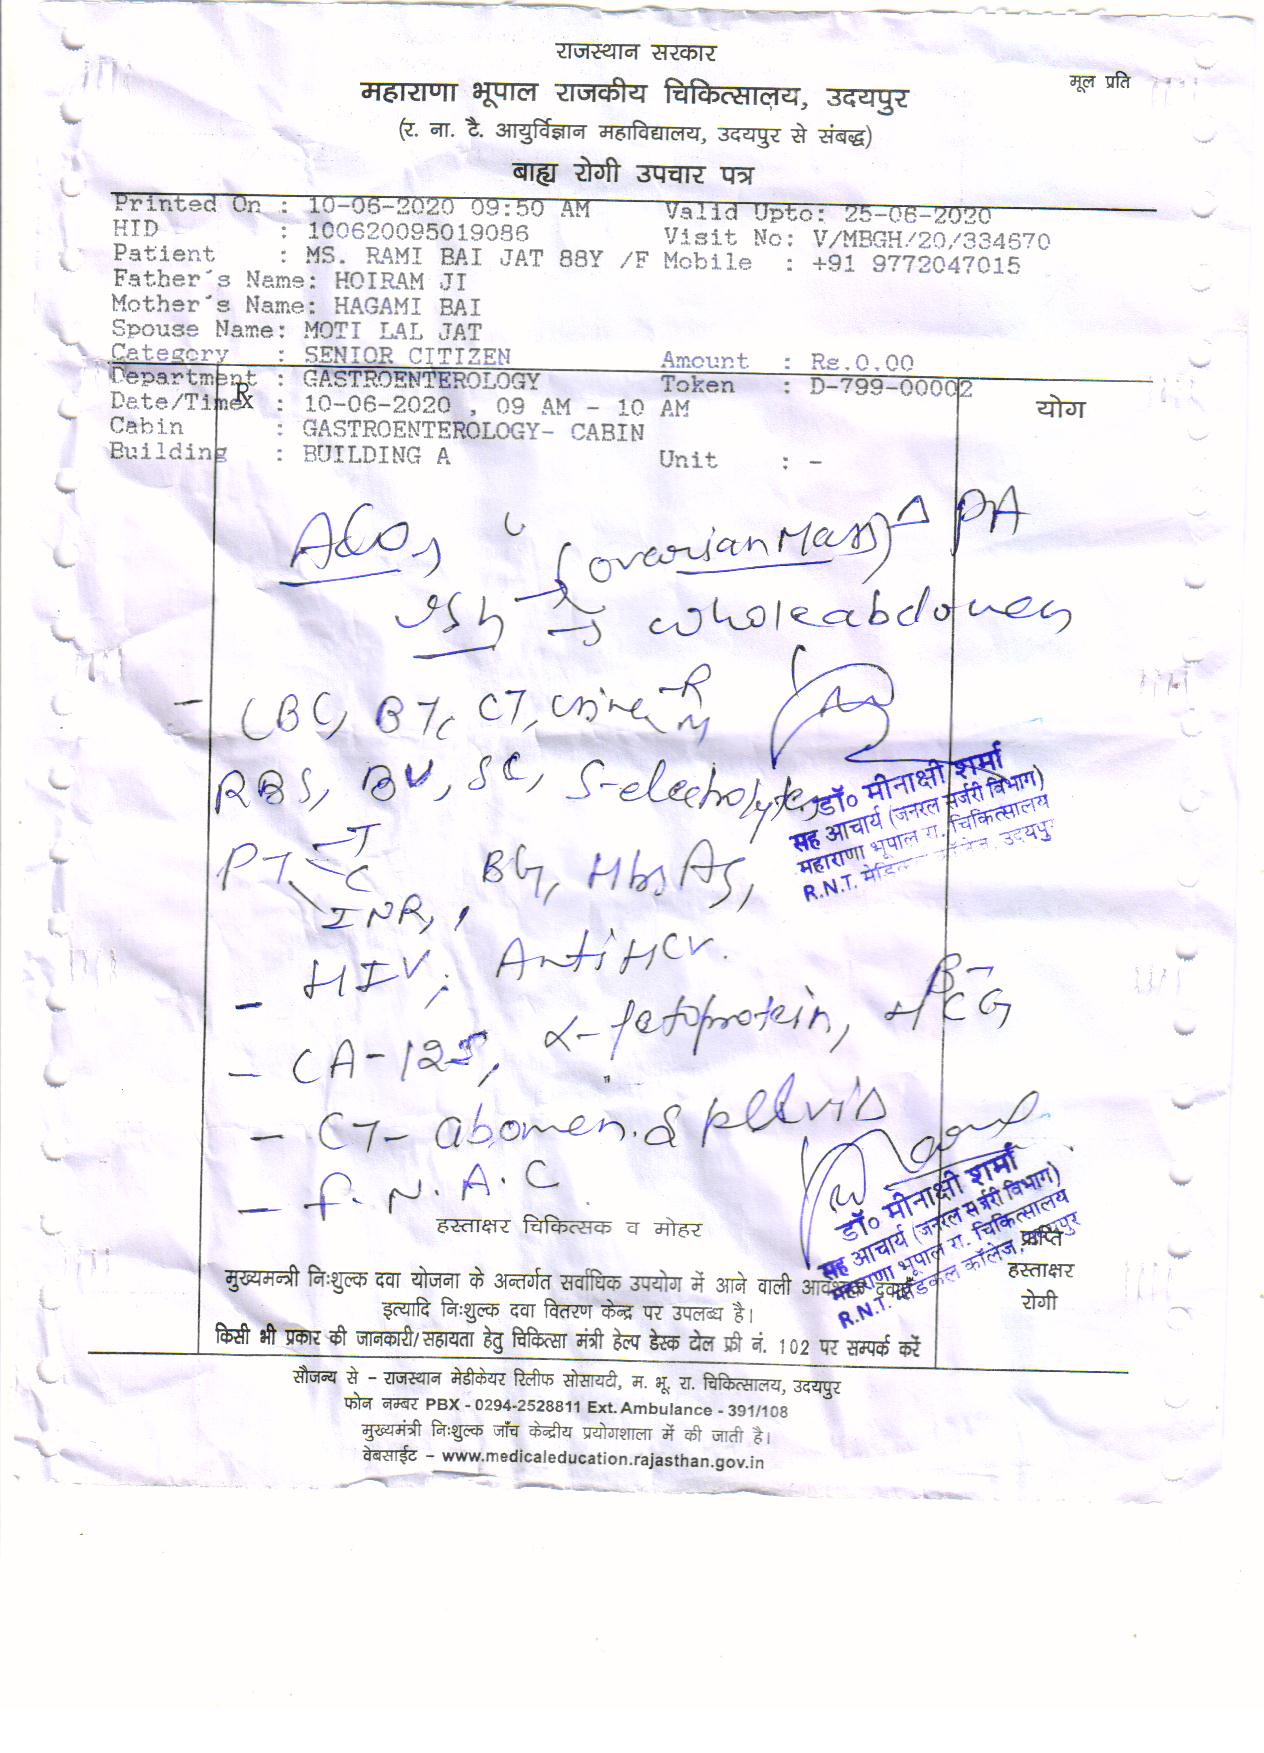 राजस्थान सरकार
मूल प्रति
महाराणा भूपाल राजकीय चिकित्सालय, उदयपुर
(र. ना. टै. आयुर्विज्ञान महाविद्यालय, उदयपुर से संबद्ध)
बाह्य रोगी उपचार पत्र
Printed On : 10-06-2020 09:50 AM Valid Upto: 25-06-2020
HID : 100620095019086 Visit No: V/MBGH/20/334670
Patient : MS. RAMI BAI JAT 88Y /F Mobile : +91 9772047015
Father's Name: HOIRAM JI
Mother's Name: HAGAMI BAI
Spouse Name: MOTI LAL JAT
Category : SENIOR CITIZEN Amount : Rs.0.00
Department : GASTROENTEROLOGY Token : D-799-00002
Rx
Date/Time : 10-06-2020 , 09 AM - 10 AM योग
Cabin : GASTROENTEROLOGY- CABIN
Building : BUILDING A Unit : -
(ovarian Mass) PA
wholeabdomen
- CBC, BT, CT, Urine R M
RBS, BU, SC, S-electrolytes
डॉ० मीनाक्षी शर्मा
सह आचार्य (जनरल सर्जरी विभाग)
महाराणा भूपाल रा. चिकित्सालय
R.N.T. मेडिकल कॉलेज, उदयपुर
PT T C INR, BG, HbsAg,
- HIV, Anti HCV.
- CA-125, α-fetoprotein, β-HCG
- CT- abomen & pelvis
- F.N.A.C
डॉ० मीनाक्षी शर्मा
सह आचार्य (जनरल सर्जरी विभाग)
महाराणा भूपाल रा. चिकित्सालय
R.N.T. मेडिकल कॉलेज, उदयपुर
हस्ताक्षर चिकित्सक व मोहर
प्राप्ति
हस्ताक्षर
रोगी
मुख्यमन्त्री निःशुल्क दवा योजना के अन्तर्गत सर्वाधिक उपयोग में आने वाली आवश्यक दवाएँ
इत्यादि निःशुल्क दवा वितरण केन्द्र पर उपलब्ध है।
किसी भी प्रकार की जानकारी/सहायता हेतु चिकित्सा मंत्री हेल्प डेस्क टोल फ्री नं. 102 पर सम्पर्क करें
सौजन्य से – राजस्थान मेडीकेयर रिलीफ सोसायटी, म. भू. रा. चिकित्सालय, उदयपुर
फोन नम्बर PBX - 0294-2528811 Ext. Ambulance - 391/108
मुख्यमंत्री निःशुल्क जाँच केन्द्रीय प्रयोगशाला में की जाती है।
वेबसाईट – www.medicaleducation.rajasthan.gov.in